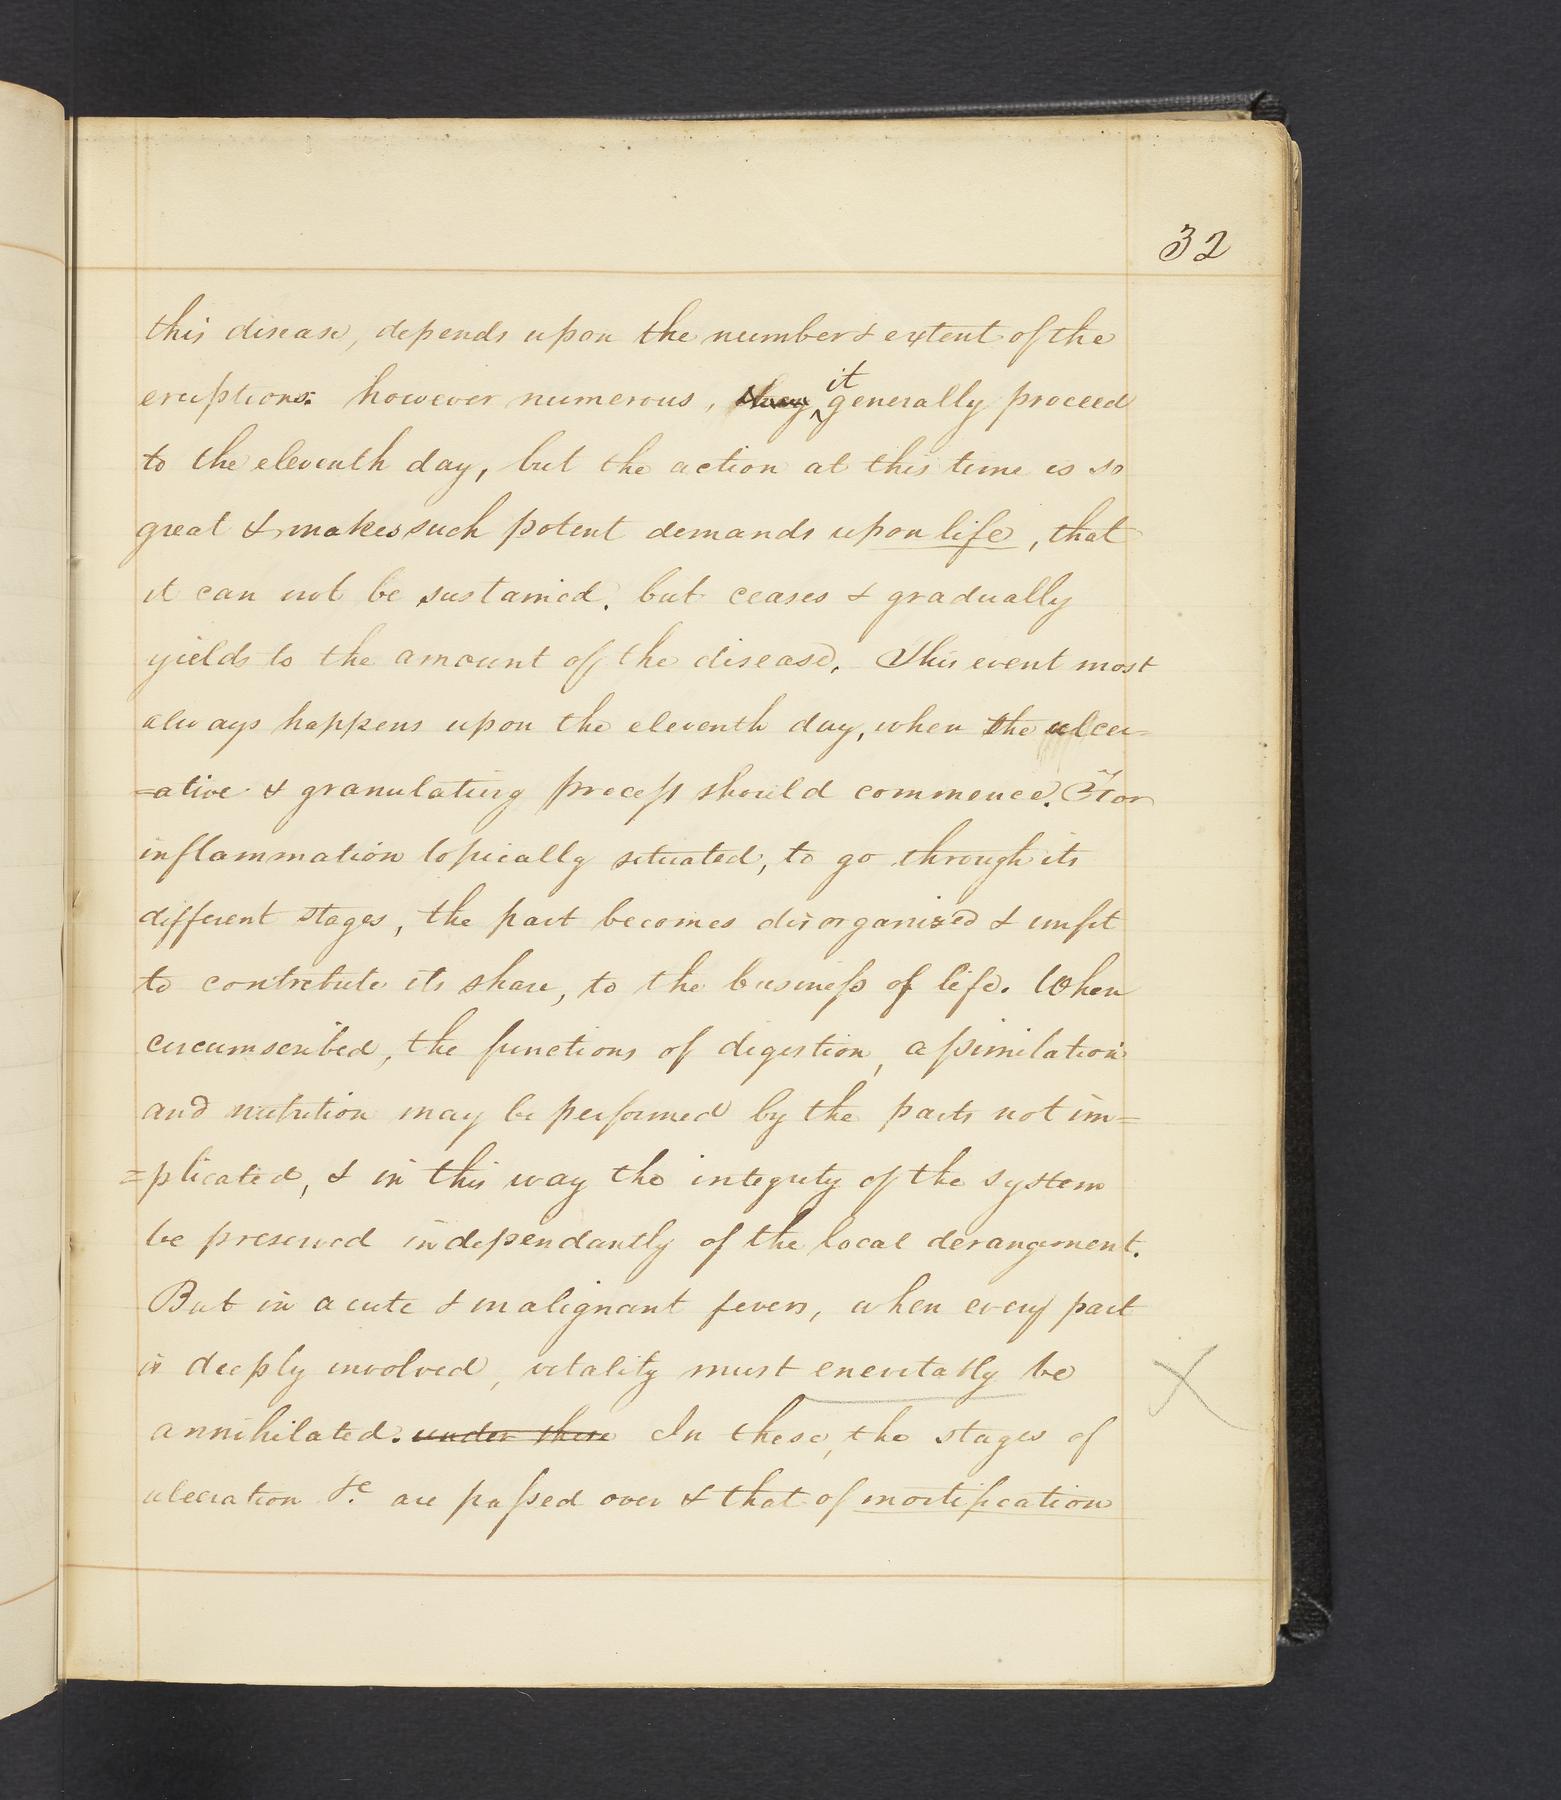 32
this disease, depends upon the number & extent of the
eruptions. however numerous, they it generally proceed
to the eleventh day, but the action at this time is so
great & makes such potent demands upon life, that
it can not be sustained. but ceases & gradually
yields to the amount of the disease. This event most
always happens upon the eleventh day, when the ulcer=
=ative & granulating process should commence. "For
inflammation topically situated, to go through its
different stages, the part becomes disorganized & unfit
to contribute its share, to the business of life. When
circumscribed, the functions of digestion, assimilation
and nutrition may be performed by the parts not im=
=plicated, & in this way the integrity of the system
be preserved independantly of the local derangement.
But in acute & malignant fevers, when every part
is deeply involved, vitality must enevitably be
annihilated. under these In these, the stages of
ulceration &c are passed over & that of mortification